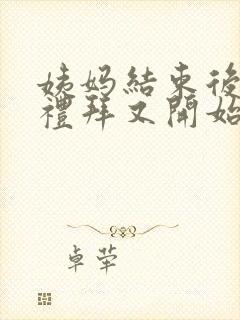 姨妈結束後
禮拜又開始
卓犖